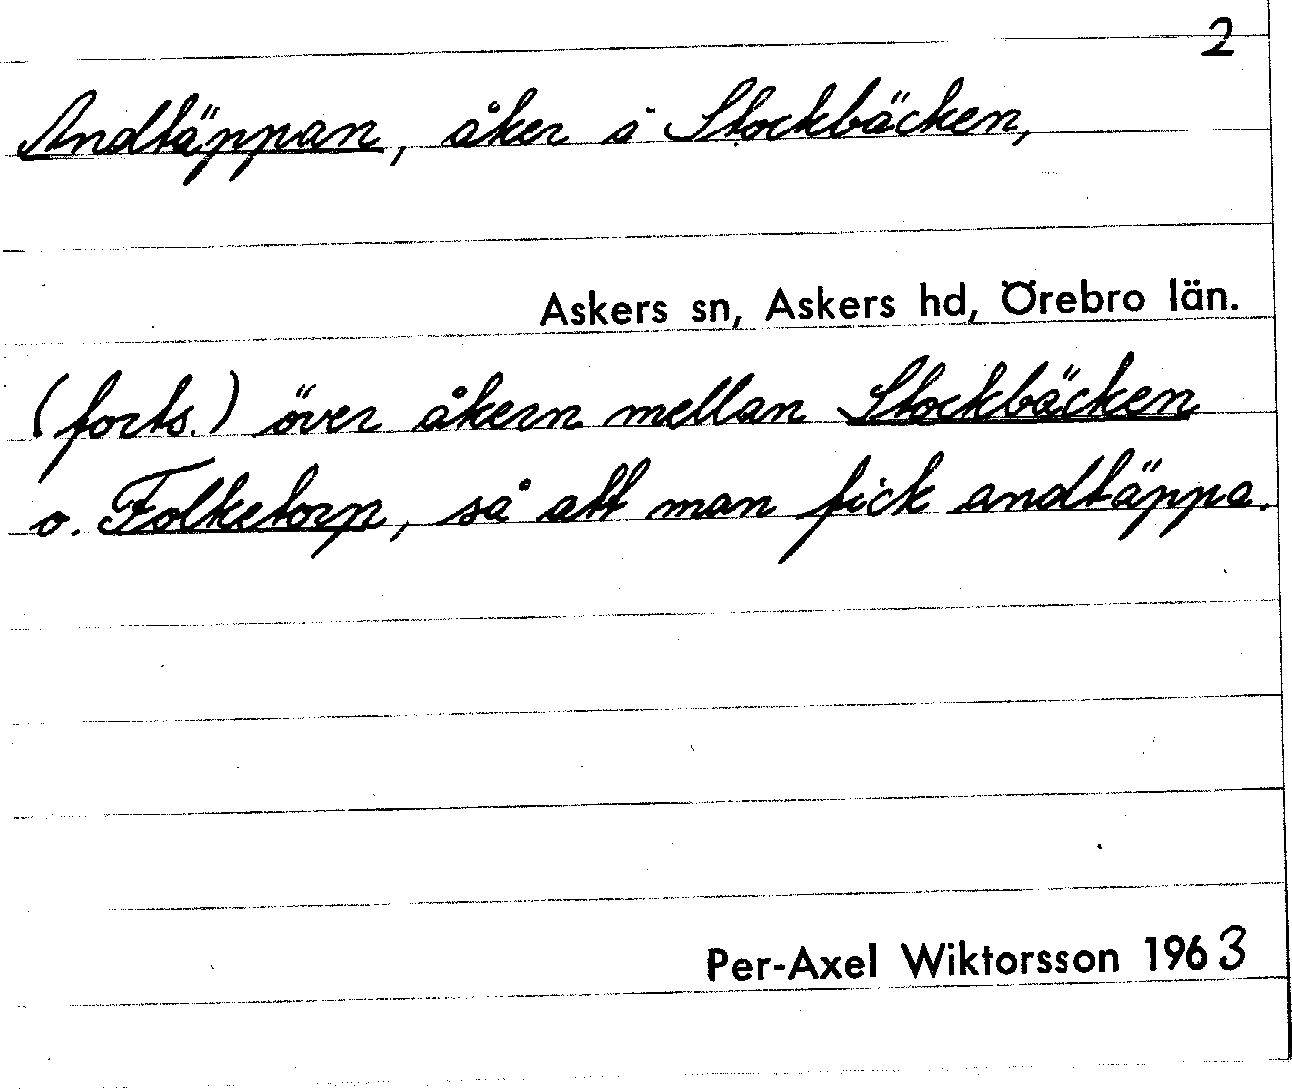 2
Andtäppan, åker å Stockbäcken,
Askers sn, Askers hd, Örebro län.
(forts.) över åkern mellan Stockbäcken
o. Folketorp, så att man fick andtäppa.
Per-Axel Wiktorsson 1963